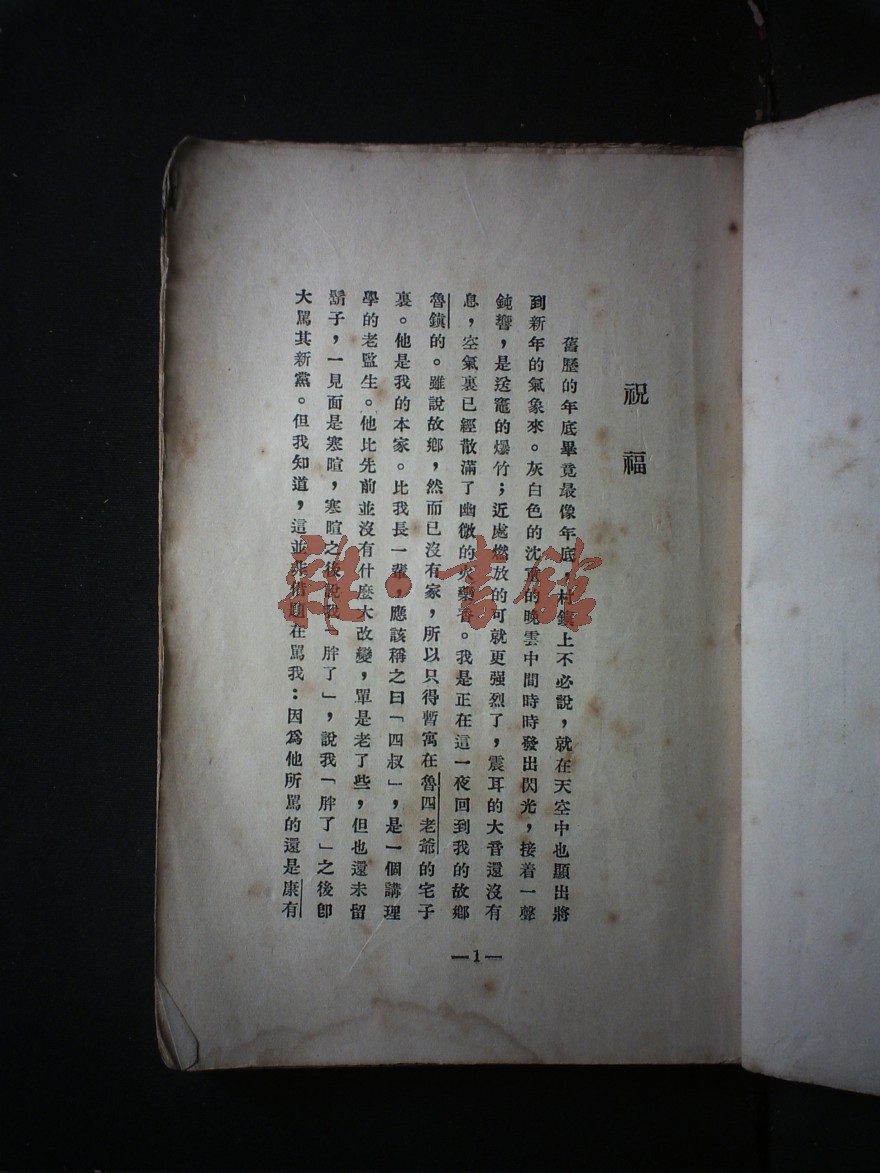 祝福
舊歷的年底畢竟最像年底，村鎮上不必說，就在天空中也顯出將
到新年的氣象來。灰白色的沈重的晚雲中間時時發出閃光，接着一聲
鈍響，是送竈的爆竹；近處燃放的可就更强烈了，震耳的大音還沒有
息，空氣裏已經散滿了幽微的火藥香。我是正在這一夜回到我的故鄉
魯鎭的。雖說故鄉，然而已沒有家，所以只得暫寓在魯四老爺的宅子
裏。他是我的本家。比我長一輩，應該稱之曰「四叔」，是一個講理
學的老監生。他比先前並沒有什麽大改變，單是老了些，但也還未留
鬍子，一見面是寒暄，寒暄之後說我「胖了」，說我「胖了」之後卽
大駡其新黨。但我知道，這並非借題在駡我：因爲他所駡的還是康有
—1—
雜·書館